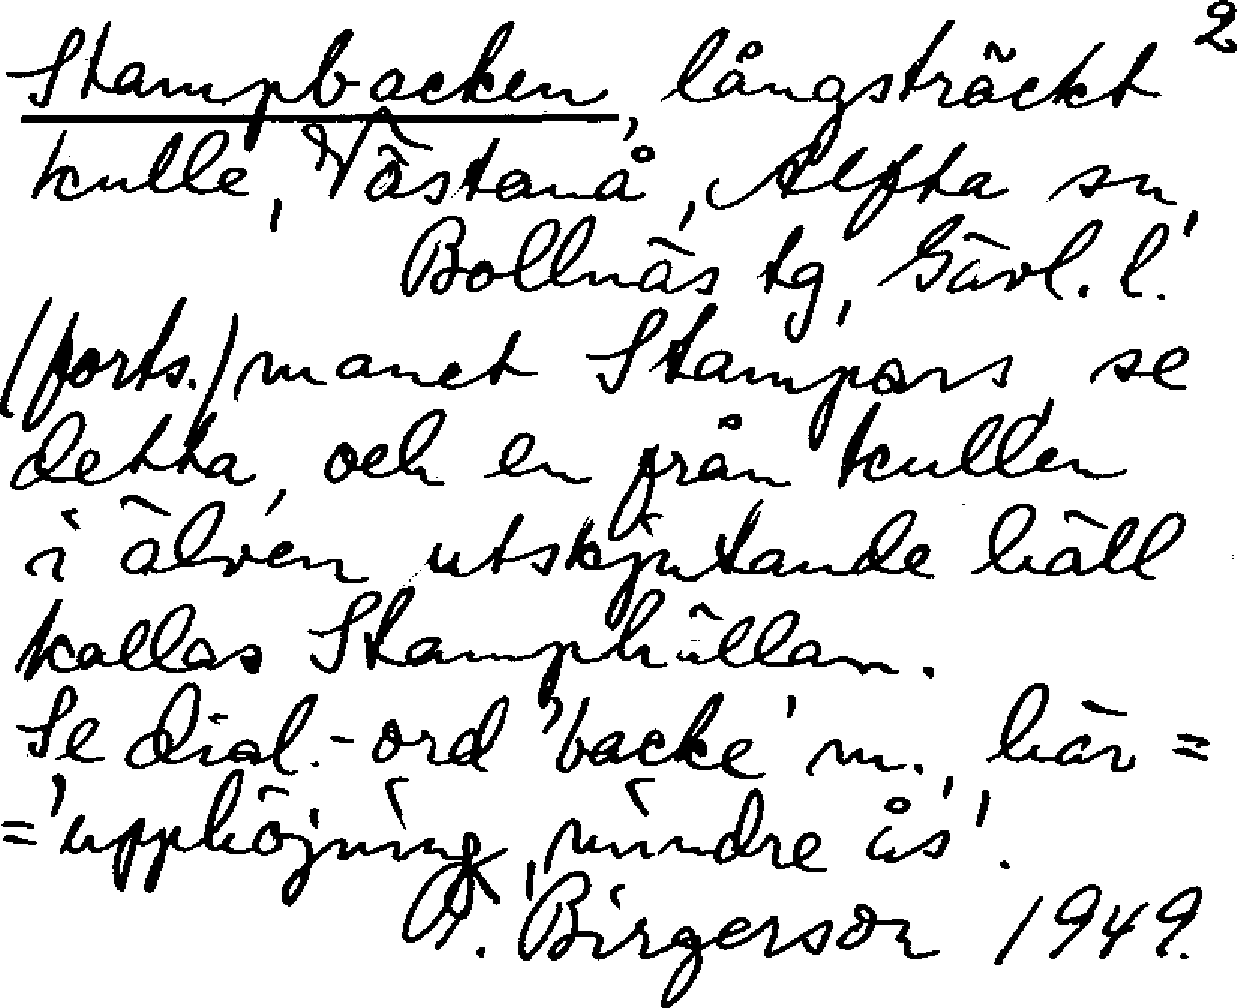 2
Stampbacken, långsträckt
kulle, Västanå, Alfta sn,
Bollnäs tg, Gävl. l.
(forts.) manet Stampars, se
detta, och en från kullen
i älven utskjutande häll
kallas Stamphällan.
Se dial.-ord 'backe' m., här =
= 'upphöjning, mindre ås'.
A. Birgerson 1949.